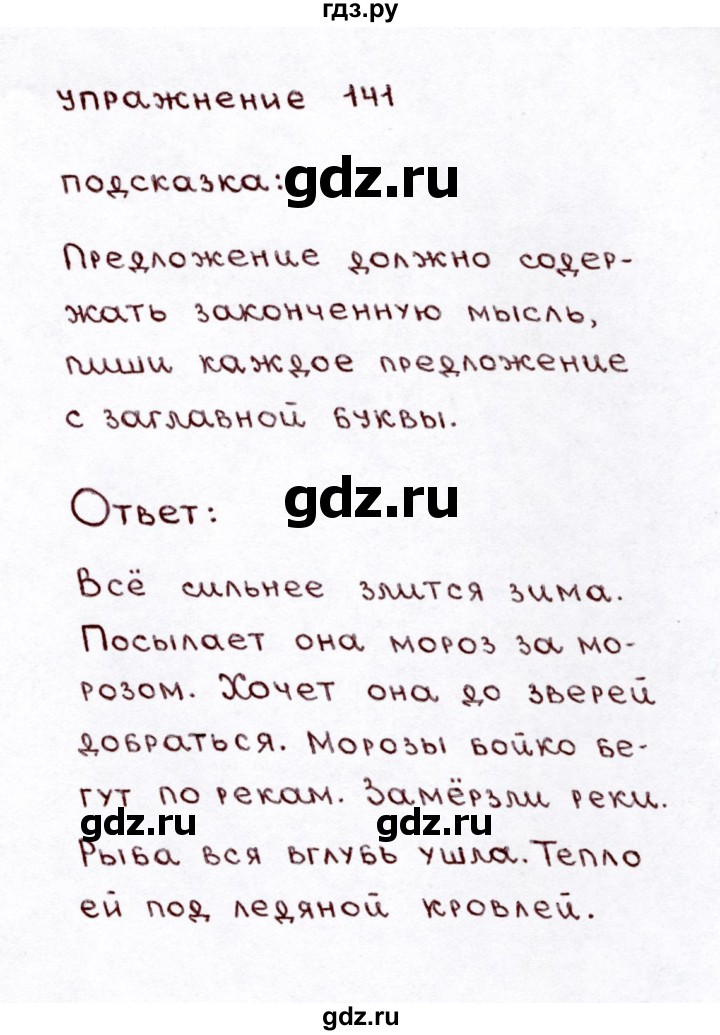 гдз.ру
упражнение 141
подсказка:
gdz.ru
Предложение должно содер-
жать законченную мысль,
пиши каждое предложение
с заглавной буквы.
Ответ:
gdz.ru
Всё сильнее злится зима.
Посылает она мороз за мо-
розом. Хочет она до зверей
добраться. Морозы бойко бе-
гут по рекам. Замёрзли реки.
gdz.ru gdz.ru
Рыба вся вглубь ушла. Тепло
ей под ледяной кровлей.
gdz.ru